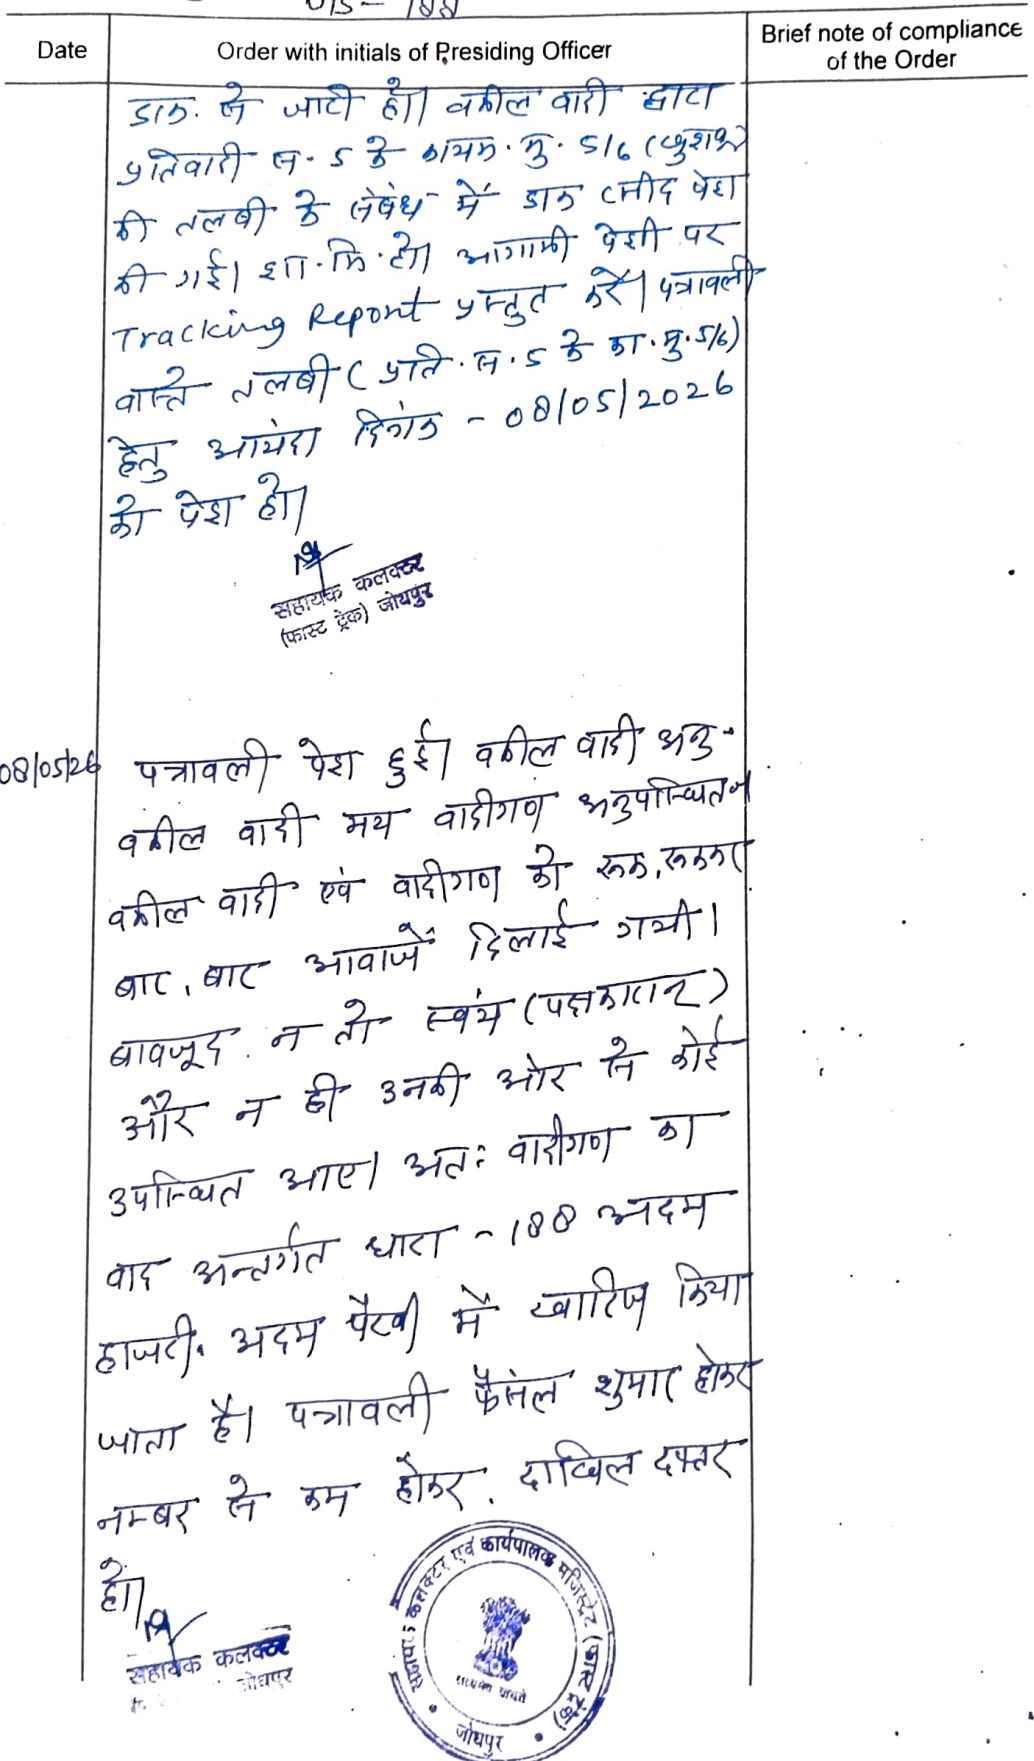 US- 188
Date
Order with initials of Presiding Officer
Brief note of compliance
of the Order
डाक. से जारी हो। वकील वादी द्वारा
प्रतिवादी स. 5 के कायम. मु. 5/6
की तलबी के संबंध में डाक रसीद पेश
की गई। शा. मि. हो। आगामी पेशी पर
Tracking Report प्रस्तुत करें। पत्रावली
वास्ते तलबी ( प्रति. स. 5 के का. मु. 5/6)
हेतु आयंदा दिनांक - 08/05/2026
को पेश हो।
सहायक कलक्टर
(फास्ट ट्रेक) जोधपुर
08/05/26
पत्रावली पेश हुई। वकील वादी अनु.
वकील वादी मय वादीगण अनुपस्थित।
वकील वादी एवं वादीगण को रूक, रूककर
बार, बार आवाजें दिलाई गयी।
बावजूद न तो स्वंय (पक्षकारान)
और न ही उनकी ओर से कोई
उपस्थित आए। अतः वादीगण का
वाद अन्तर्गत धारा - 188 अदम
हाजरी. अदम पैरवी में खारिज किया
जाता है। पत्रावली फैसल शुमार होकर
नम्बर से कम होकर. दाखिल दफ्तर
हो।
सहायक कलक्टर
जोधपुर
सहायक कलक्टर एवं कार्यपालक मजिस्ट्रेट (फास्ट ट्रेक)
सत्यमेव जयते
जोधपुर